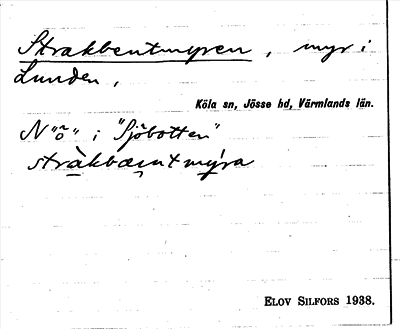 Strakbentmyren, myr i
Lunden,
Köla sn, Jösse hd, Värmlands län.
N "ö" i "Sjöbotten"
stràkbæntmýra
ELOV SILFORS 1938.